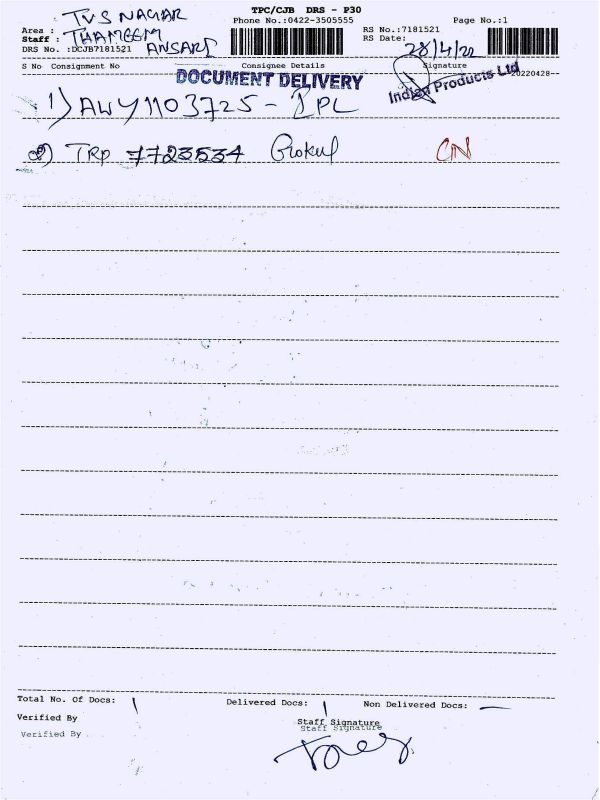 TPC/CJB DRS - P30
TVS NAGAR
Phone No.:0422-3505555
Page No.:1
Area :
RS No.:7181521
Staff : THAMEEM
RS Date:
DRS No. :DCJB7181521 ANSARI
28/4/22
S No Consignment No Consignee Details Signature
20220428-
DOCUMENT DELIVERY
Indian Products Ltd
1) AWY1103725 - IPL
2) TRP 7723534 Gokul
Total No. Of Docs: 1 Delivered Docs: 1 Non Delivered Docs: —
Verified By Staff Signature
Verified By Staff Signature